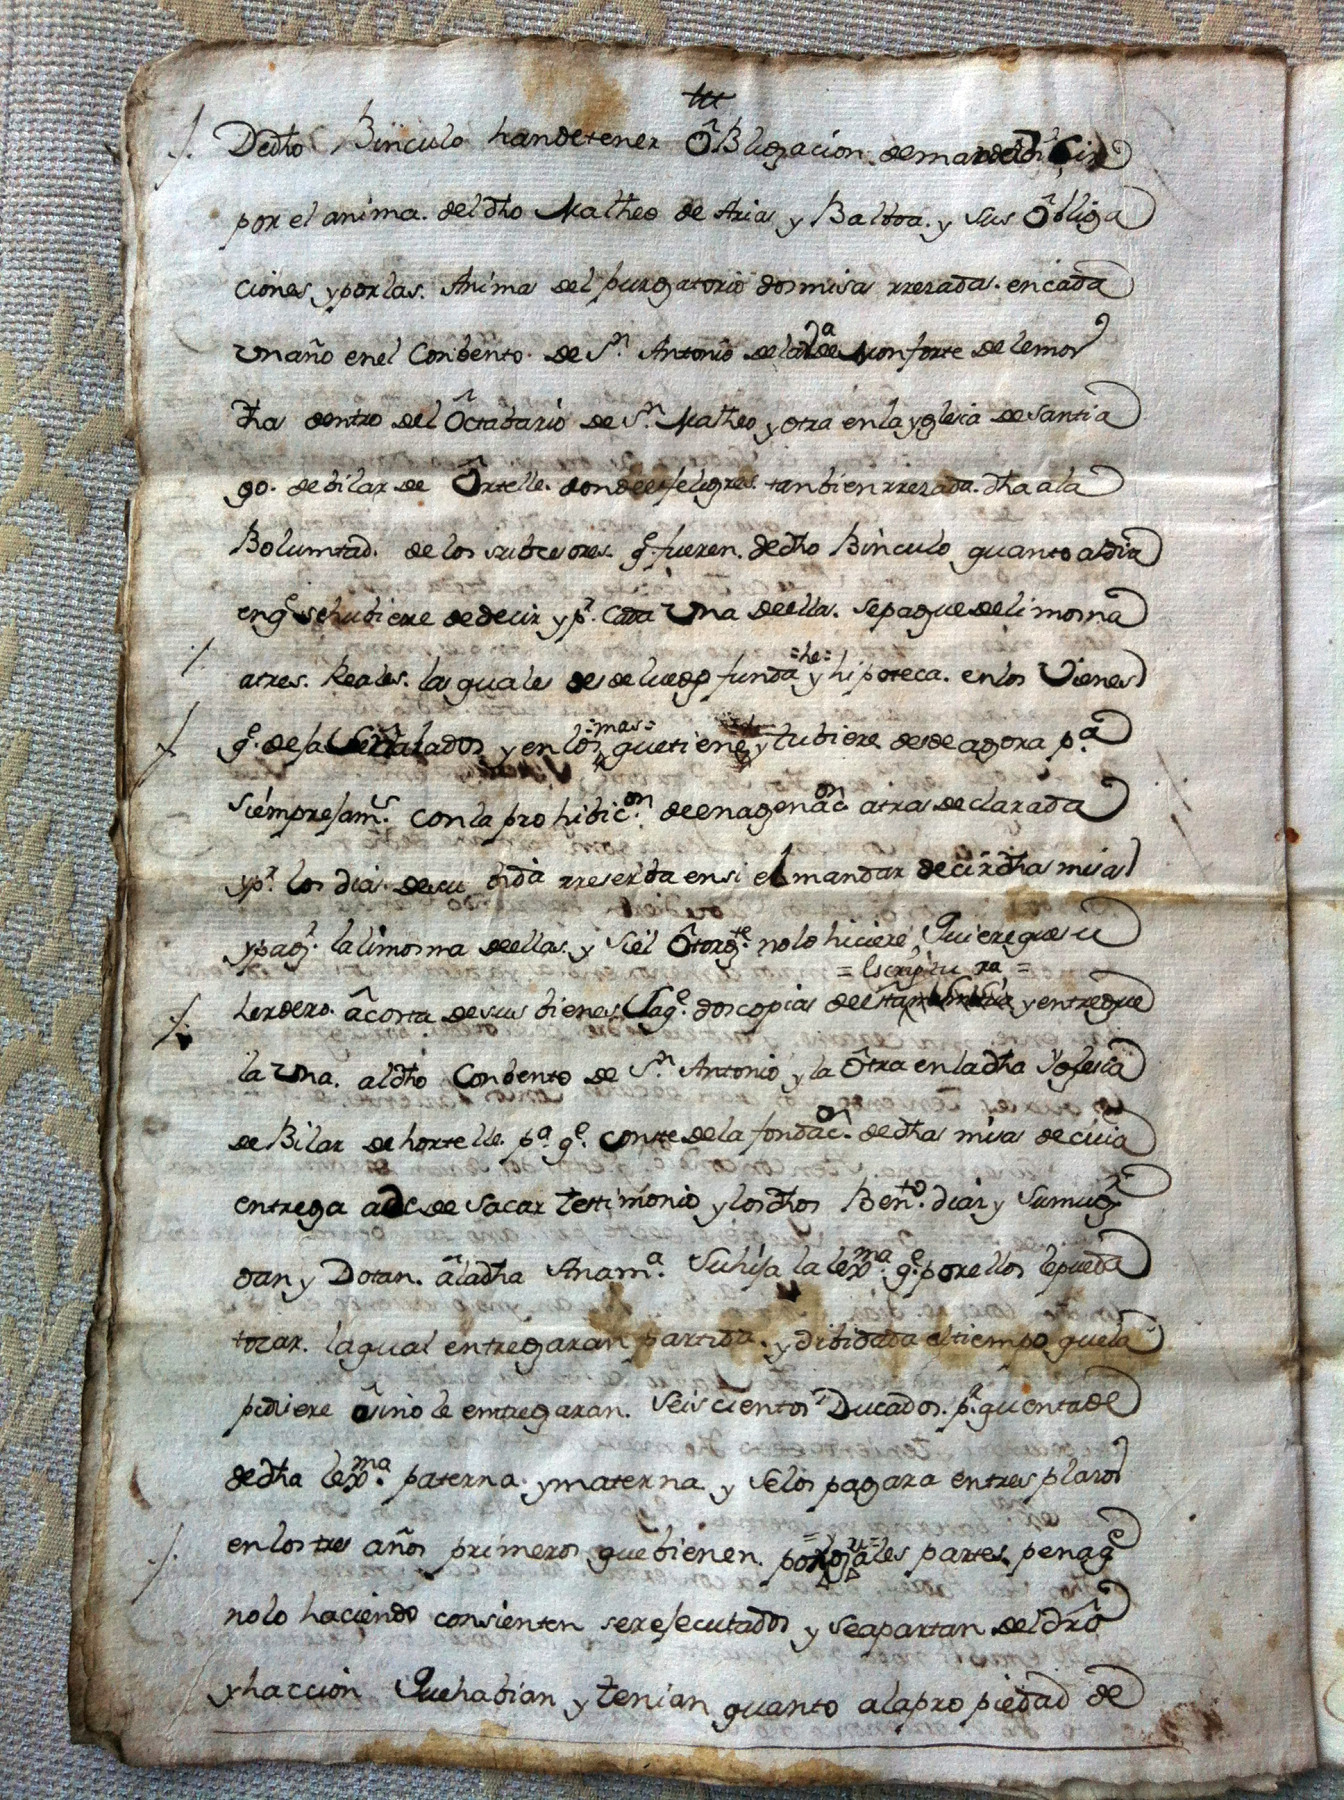 De dho Binculo han de tener OBligacion de mandar deCir
por el anima. del dho Matheo de Arias y Balboa. y sus obliga
ciones y por las. Animas del purgatorio dos misas rrezadas. en cada
Un año en el Conbento. de Sn. Antonio de la Va de Monforte de lemos
dha dentro del Octabario de Sn. Matheo y otra en la yglesia de santia
go. de bilar de Ortelle. donde es feligres. tanbien rrezada. dha a la
Boluntad. de los subcesores. qe. fueren. de dho Binculo quanto al dia
en qe se hubiere de decir y pr. Cada Una de ellas. se pague de limosna
a tres. Reales. las quales desde luego funda =he= y hipoteca. en los Vienes
qe. desa Señalados y en los =mas= que tiene y tubiere desde agora pa.
siempre jams. con la prohibicon. de enagenacon atras declarada
y pr. los dias. de su bida rreserba en si el mandar decir dhas misas
y pagr. la limosna de ellas. y si el Otorgte. no lo hiciere, Quiere que su
=Escriptura=
herdero. a costa de sus bienes Saqe. dos copias de esta y entregue
la Una. al dho Conbento de Sn. Antonio y la Otra en la dha Yglesia
de Bilar de hortelle. pa. qe. conste de la fondacon. de dhas misas de cuia
entrega a de de sacar testimonio y los dhos Bento. diaz y su mugr
dan y Dotan. a la dha Ana ma. Su hija la lexma. qe. por ellos le pueda
tocar. la qual entregaran partida. y dibidada el tiempo que la
pidiere o sino le entregaran. Seiscientos Ducados. pa. quenta de
de dha lexma. paterna. y materna y se los pagara en tres plazos
en los tres años primeros que bienen. por yguales partes pena qe
no lo haciendo consienten ser ejecutados y se apartan del dro
y haccion Que habian y tenian quanto a la propiedad de